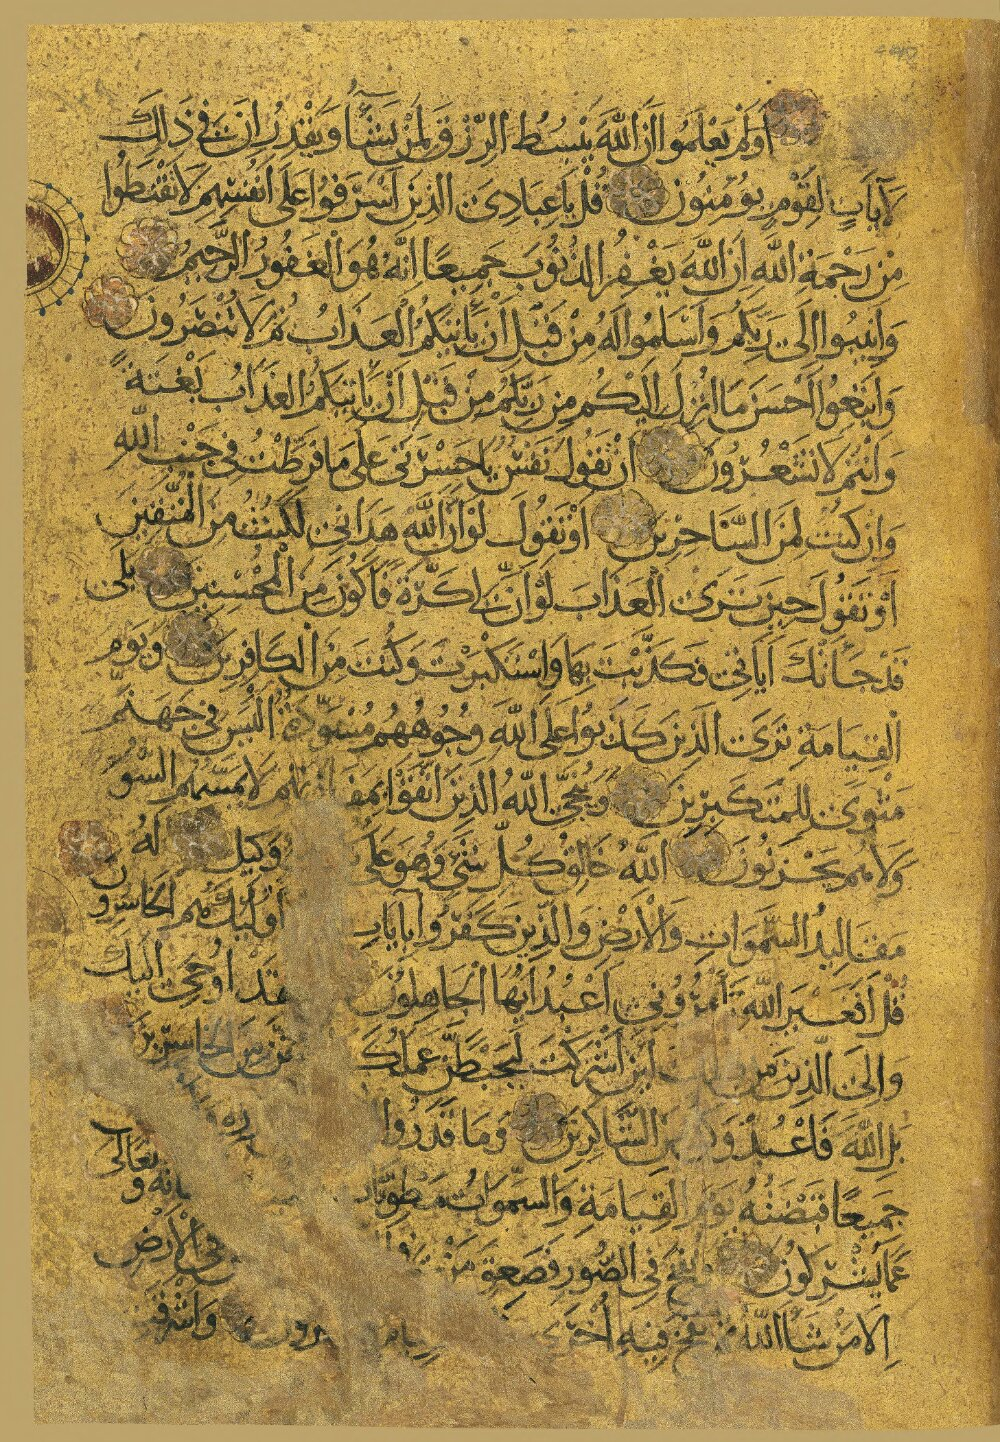 أولم يعلموا أن الله يبسط الرزق لمن يشأ ويقدر إن في ذلك
لآيات لقوم يؤمنون قل يا عبادي الذين أسرفوا على أنفسهم لا تقنطوا
من رحمة الله إن الله يغفر الذنوب جميعا إنه هو الغفور الرحيم
وأنيبوا إلى ربكم وأسلموا له من قبل أن يأتيكم العذاب ثم لا تنصرون
واتبعوا أحسن ما أنزل إليكم من ربكم من قبل أن يأتيكم العذاب بغتة
وأنتم لا تشعرون أن تقول نفس يا حسرتى على ما فرطت في جنب الله
وإن كنت لمن الساخرين أو تقول لو أن الله هداني لكنت من المتقين
أو تقول حين ترى العذاب لو أن لي كرة فأكون من المحسنين بلى
قد جاءتك آياتي فكذبت بها واستكبرت وكنت من الكافرين ويوم
القيامة ترى الذين كذبوا على الله وجوههم مسودة أليس في جهنم
مثوى للمتكبرين وينجي الله الذين اتقوا لا يمسهم السوء
ولا هم يحزنون الله خالق كل شيء وهو على وكيل له
مقاليد السموات والأرض والذين كفروا بآيات أولئك هم الخاسرون
قل أفغير الله تأمروني أعبد أيها الجاهلون أوحي إليك
وإلى الذين من لئن أشركت ليحبطن عملك من الخاسرين
بل الله فاعبد وكن من الشاكرين وما قدروا
جميعا قبضته يوم القيامة والسموات مطويات وتعالى
عما يشركون في الصور فصعق من في الأرض
إلا من شاء الله نفخ فيه أخرى وأشرقت